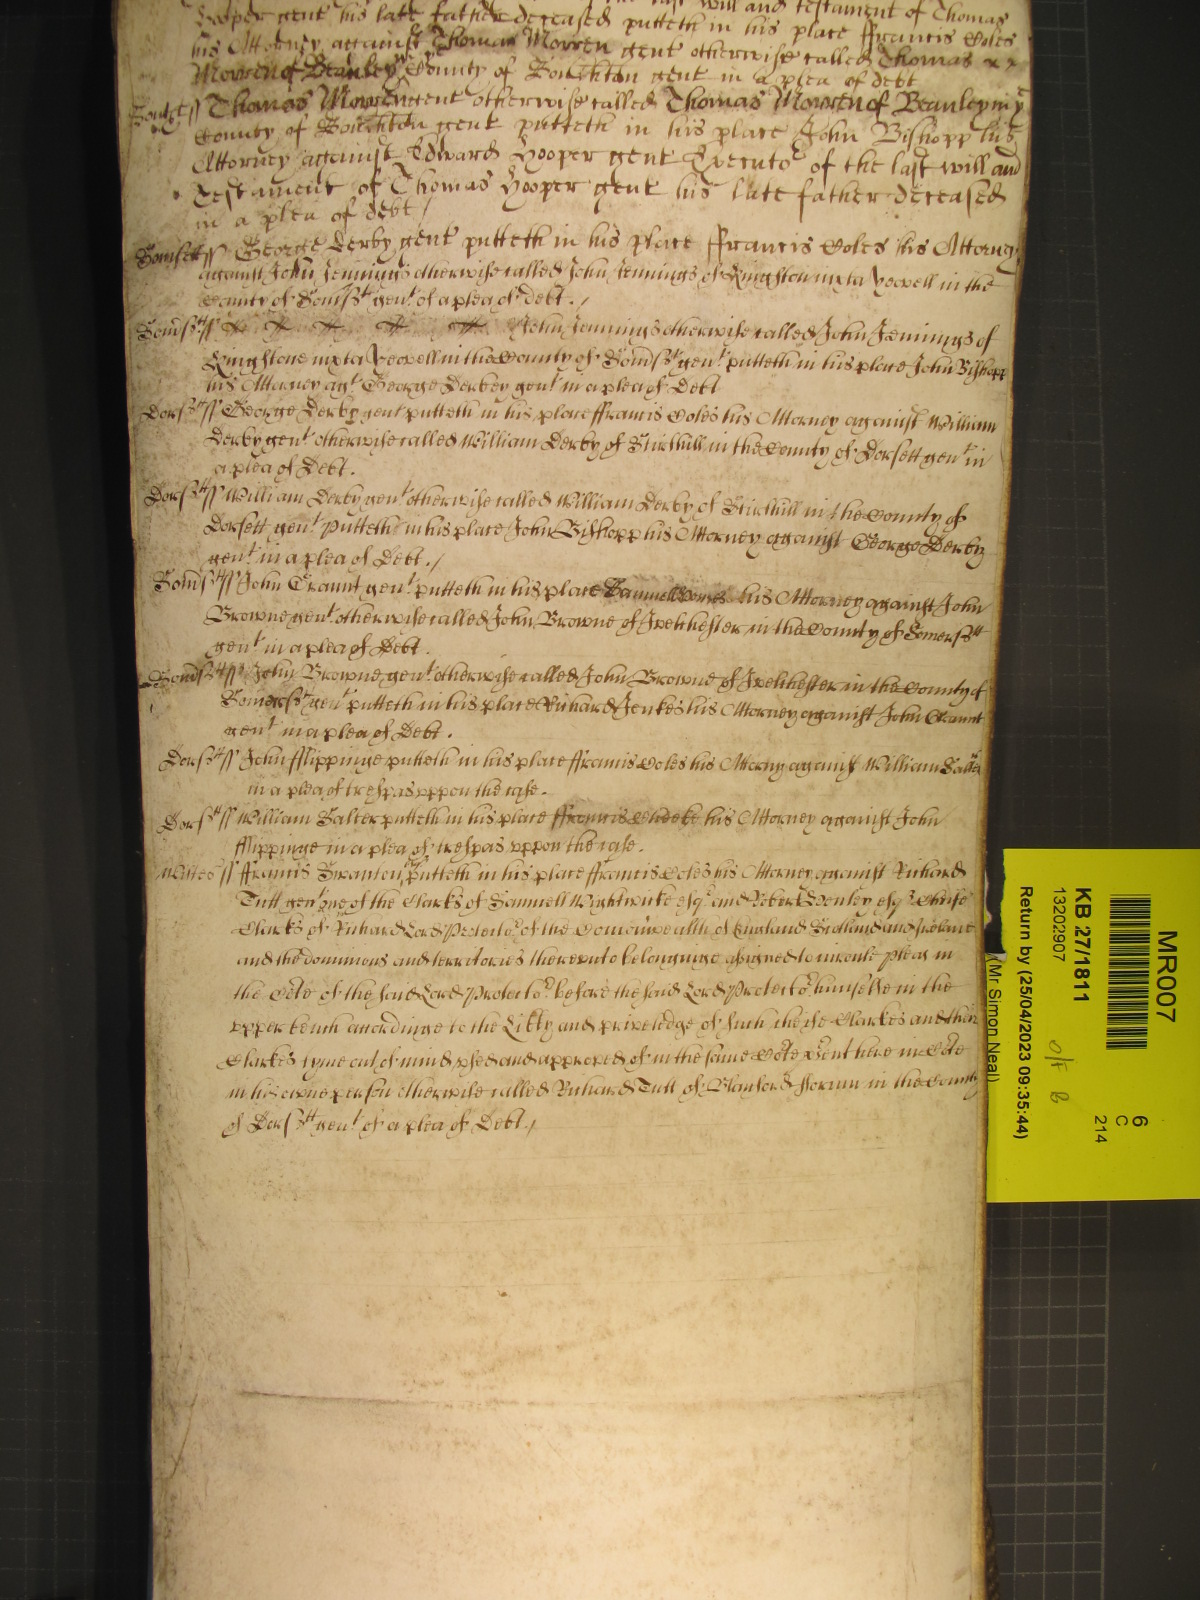 last will and testament of Thomas
Hooper gent his late father deceased putteth in his place ffrancis Coles
his Attorney against Thomas Mowren gent otherwise called Thomas
Mowren of Beauley County of Southton gent in a plea of debt
ss Thomas Mowren gent otherwise called Thomas Mowren of Beauley in ye
County of Southton gent putteth in his place John Bishopp his
Attorney against Edward Hooper gent Executor of the last will and
Testament of Thomas Hooper gent his late father deceased
in a plea of debt /
Somsett ss George Derby gent putteth in his place ffrancis Coles his Attorney
against John Jennings otherwise called John Jennings of Kingston iuxta Yeovell in the
County of Somstt gent of a plea of debt . /
Somstt ss John Jennings otherwise called John Jennings of
Kingstone iuxta Yeovell in the County of Somstt gent putteth in his place John Bishopp
his Attorney agt George Derbey gent in a plea of Debt
Dorstt ss George Derby gent putteth in his place ffrancis Coles his Attorney against William
Derby gent otherwise called William Derby of Sturthill in the County of Dorsett gent in
a plea of Debt .
Dorstt ss William Derby gent otherwise called William Derby of Sturthill in the County of
Dorsett gent Putteth in his place John Bishopp his Attorney against George Derby
gent in a plea of Debt . /
Somstt ss John Graunt gent putteth in his place Samuell his Attorney against John
Browne gent otherwise called John Browne of Ivelchester in the County of Somerstt
gent in a plea of Debt .
Somstt ss John Browne gent otherwise called John Browne of Ivelchester in the County of
Somerstt gent putteth in his place Richard Jenkes his Attorney against John Graunt
gent in a plea of Debt .
Dorstt ss John fflippinge putteth in his place ffrancis Coles his Attorny against William Salter
in a plea of trespas uppon the case .
Dorstt ss William Salter putteth in his place ffrancis his Attorney against John
fflippinge in a plea of trespas uppon the case .
ss ffrancis Swanton putteth in his place ffrancis Coles his Attorney against Richard
Tutt gent one of the Clarks of Samuell Wightwicke esqr and Robert Henley esqr Cheife
Clarks of Richard Lord Protector of the Comonwealth of England Scotland and Ireland
and the dominions and territories thereunto belonginge assigned to inroule pleas in
the Cote of the said Lord Protector before the said Lord Protector himselfe in the
upper bench accordinge to the Libty and priveledge of such cheife Clarkes and their
Clarkes tyme out of mind used and approved of in the same Cote psent here in Cote
in his owne person otherwise called Richard Tutt of Blanford fforum in the County
of Dorstt gent of a plea of Debt . /
MR007
6
C
214
KB 27/1811
13202907
Return by (25/04/2023 09:35:44)
(Mr Simon Neal)